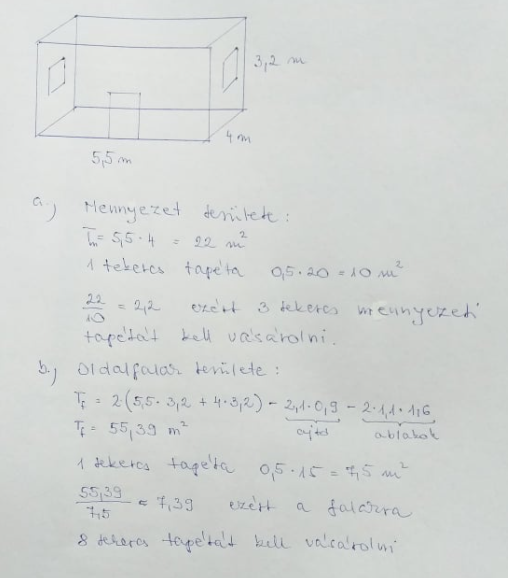 3,2 m
4 m
5,5 m
a.) Mennyezet területe:
Tm = 5,5·4 = 22 m²
1 tekercs tapéta 0,5·20 = 10 m²
22/10 = 2,2 ezért 3 tekercs mennyezeti
tapétát kell vásárolni.
b.) Oldalfalak területe:
Tf = 2(5,5·3,2 + 4·3,2) - 2,1·0,9 - 2·1,1·1,6
ajtó ablakok
Tf = 55,39 m²
1 tekercs tapéta 0,5·15 = 7,5 m²
55,39/7,5 = 7,39 ezért a falakra
8 tekercs tapétát kell vásárolni